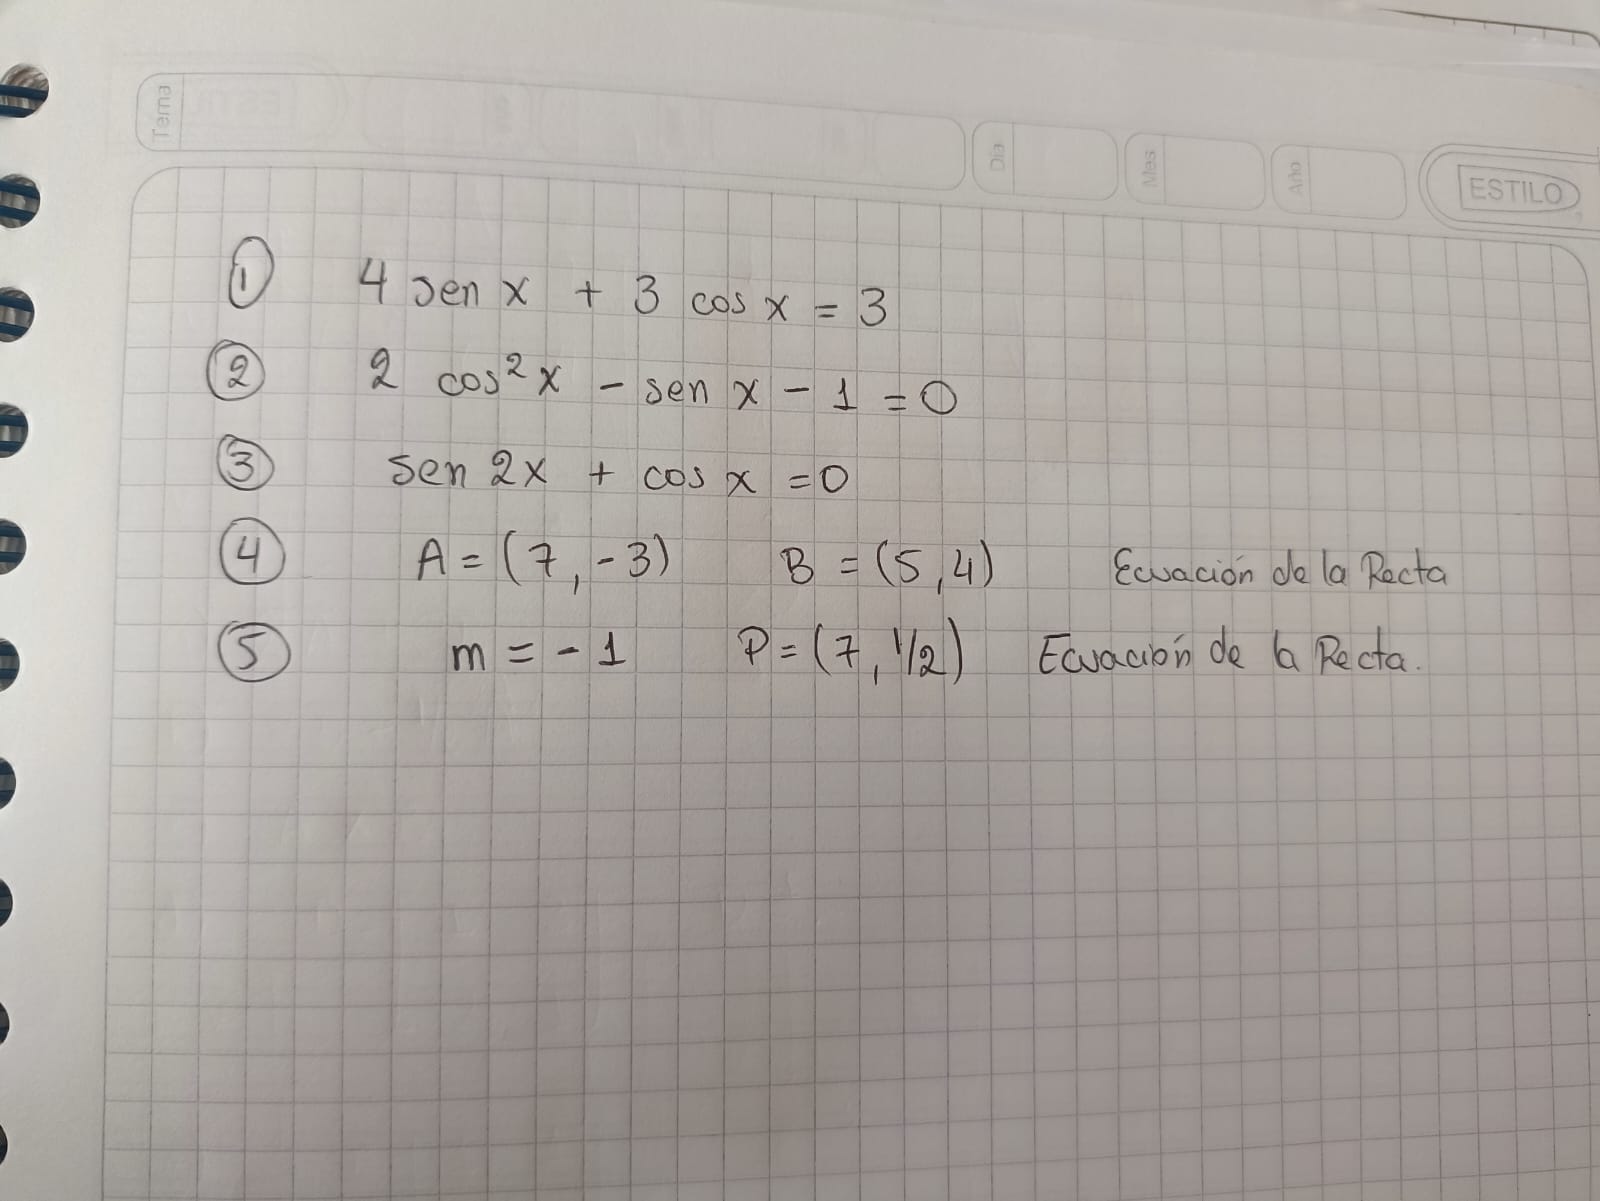 Tema
Dia
Mes
Año
ESTILO
① 4 sen x + 3 cos x = 3
② 2 cos² x - sen x - 1 = 0
③ sen 2x + cos x = 0
④ A = (7, -3) B = (5, 4) Ecuación de la Recta
⑤ m = -1 P = (7, 1/2) Ecuación de la Recta.